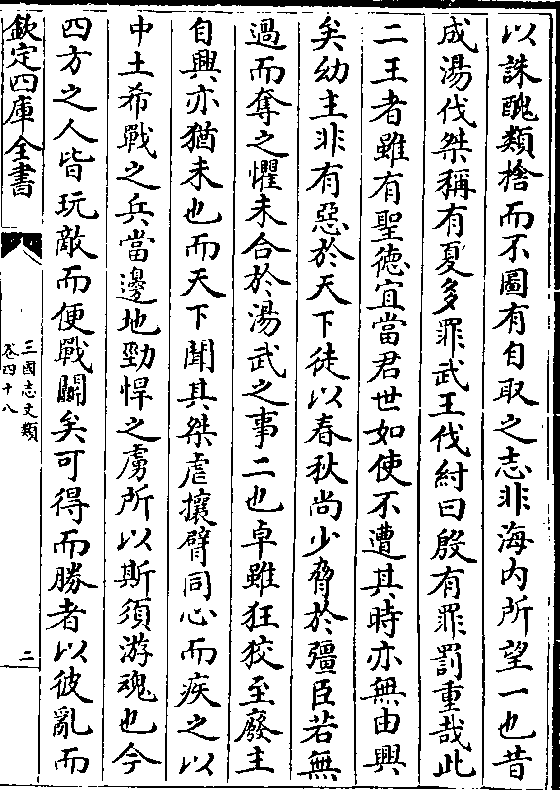 以誅醜類捨而不圖有自取之志非海内所望一也昔
成湯伐桀稱有夏多罪武王伐紂曰殷有罪罰重哉此
二王者雖有聖德宜當君世如使不遭其時亦無由興
矣幼主非有惡於天下徒以春秋尚少脅於彊臣若無
過而奪之懼未合於湯武之事二也卓雖狂狡至廢主
自興亦猶未也而天下聞其桀虐攘臂同心而疾之以
中土希戰之兵當邊地勁悍之虜所以斯須游魂也今
四方之人皆玩敵而便戰鬬矣可得而勝者以彼亂而
欽定四庫全書
三國志文類
卷四十八
二